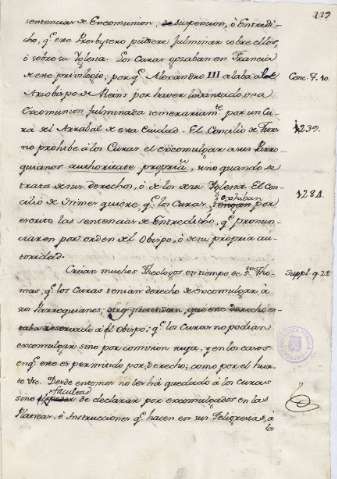 sentencias de Excomunion, de suspension, ò Entredi-
cho, qᵉ ese Presbytero pudiere fulminar sobre ellos,
ò sobre su Yglesia. Los Curas gozaban en Francia
de este privilegio; porqᵉ Alexandro III alaba al
Arzobispo de Reims por haver levantado una
Excomunion fulminada temerariamᵗᵉ por un Cu-
ra del Arrabal de esta Ciudad. El Concilio de
prohibe à los Curas el excomulgar a sus Parro-
quianos authoritate propria, sino quando se
trata de su derecho, ò de los de su Yglesia. El Con-
cilio de Nimes quiere qᵉ los Curas exhiban
escrito las sentencias de Entredicho, qᵉ pronun-
ciaren por orden del Obispo, ò de su propria au-
toridad.
Creian muchos Theologos en tiempo de Sᵗᵒ Tho-
mas, qᵉ los Curas tenian derecho de excomulgar à
sus Parroquianos; que este derecho es-
taba reservado al Obispo; qᵉ los Curas no podian
excomulgar sino por comision suya, y en los casos
enqᵉ eso es permitido por derecho; como por el hur-
to &c. Desde entonces no les há quedado à los Curas
sino facultad de declarar por excomulgados en las
Platicas, è Instrucciones qᵉ hacen en sus Feligresias, à
la
1239.
1284.
Suppl. q. 22